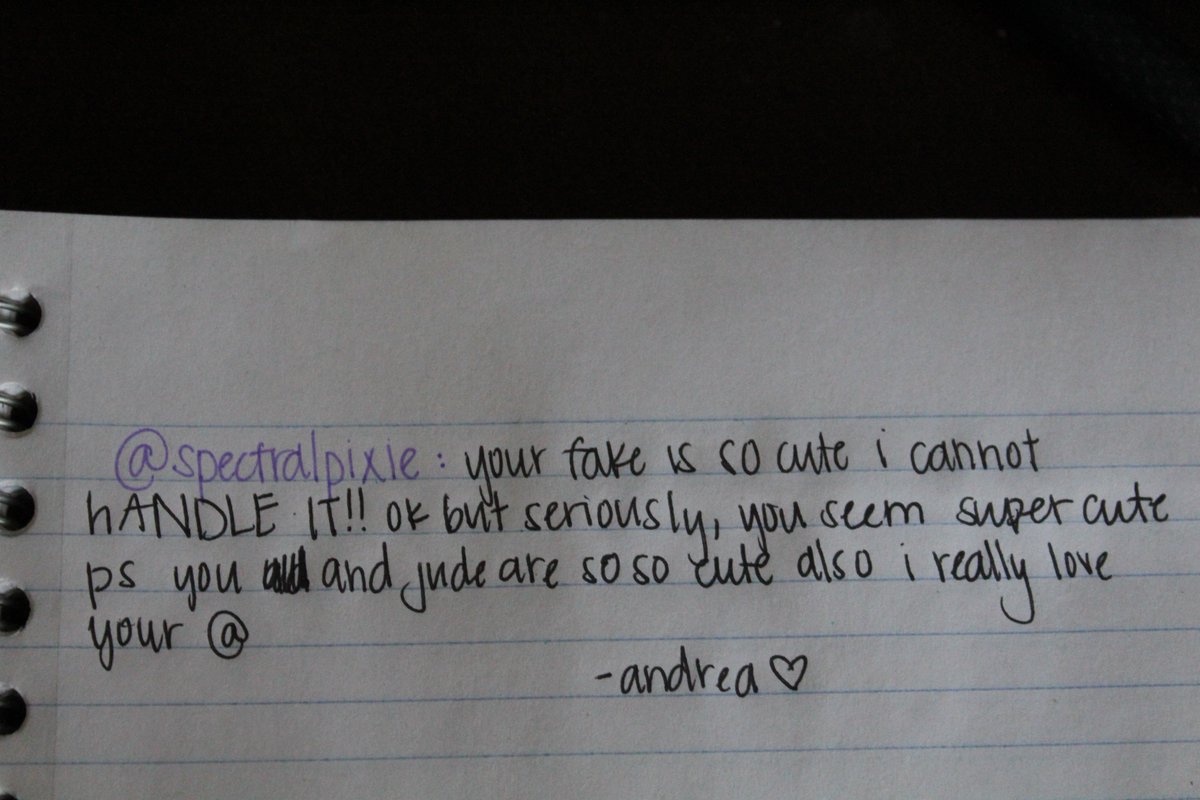 @spectralpixie: your fake is so cute i cannot
hANDLE IT!! ok but seriously, you seem super cute
ps you and jude are so so cute also i really love
your @
-andrea♡